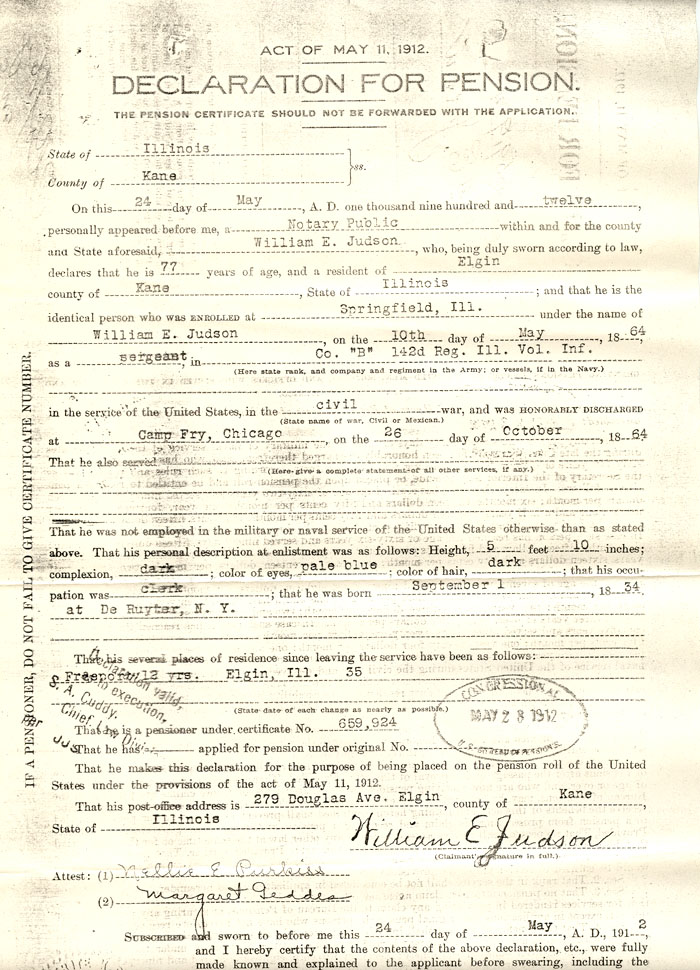 ACT OF MAY 11, 1912.
DECLARATION FOR PENSION.
THE PENSION CERTIFICATE SHOULD NOT BE FORWARDED WITH THE APPLICATION.
State of Illinois
County of Kane ss.
On this 24 day of May, A. D. one thousand nine hundred and twelve,
personally appeared before me, a Notary Public within and for the county
and State aforesaid, William E. Judson, who, being duly sworn according to law,
declares that he is 77 years of age, and a resident of Elgin
county of Kane, State of Illinois; and that he is the
identical person who was ENROLLED at Springfield, Ill. under the name of
William E. Judson, on the 10th day of May, 1864
as a sergeant, in Co. "B" 142d Reg. Ill. Vol. Inf.
(Here state rank, and company and regiment in the Army; or vessels, if in the Navy.)
in the service of the United States, in the civil war, and was HONORABLY DISCHARGED
(State name of war, Civil or Mexican.)
at Camp Fry, Chicago, on the 26 day of October, 1864
That he also served
(Here give a complete statement of all other services, if any.)
That he was not employed in the military or naval service of the United States otherwise than as stated
above. That his personal description at enlistment was as follows: Height, 5 feet 10 inches;
complexion, dark; color of eyes, pale blue; color of hair, dark; that his occu-
pation was clerk; that he was born September 1, 1834
at De Ruyter, N. Y.
That his several places of residence since leaving the service have been as follows:
Freeport 12 yrs. Elgin, Ill. 35
(State date of each change as nearly as possible.)
That he is a pensioner under certificate No. 659,924
That he has applied for pension under original No.
That he makes this declaration for the purpose of being placed on the pension roll of the United
States under the provisions of the act of May 11, 1912.
That his post-office address is 279 Douglas Ave. Elgin, county of Kane,
State of Illinois
William E Judson
(Claimant's signature in full.)
Attest: (1) Nellie E. Purkiss
(2) Margaret Geddes
SUBSCRIBED and sworn to before me this 24 day of May, A. D., 1912
and I hereby certify that the contents of the above declaration, etc., were fully
made known and explained to the applicant before swearing, including the
IF A PENSIONER, DO NOT FAIL TO GIVE CERTIFICATE NUMBER.
Declaration valid,
execution.
S. A. Cuddy,
Chief
CONGRESSIONAL
MAY 28 1912
U.S. BUREAU OF PENSIONS